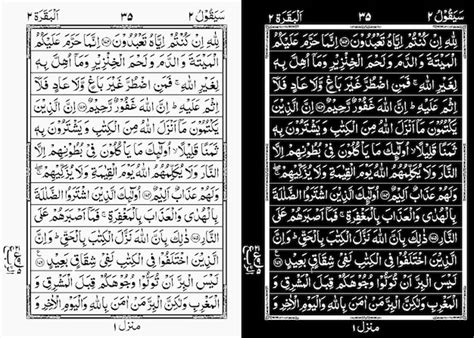 سَيَقُوْلُ ٢ ٣٥ اَلْبَقَرَة ٢
لِلّٰهِ اِنْ كُنْتُمْ اِيَّاهُ تَعْبُدُوْنَ ١٧٢ اِنَّمَا حَرَّمَ عَلَيْكُمُ
الْمَيْتَةَ وَالدَّمَ وَلَحْمَ الْخِنْزِيْرِ وَمَآ اُهِلَّ بِهٖ
لِغَيْرِ اللّٰهِ ۚ فَمَنِ اضْطُرَّ غَيْرَ بَاغٍ وَّلَا عَادٍ فَلَآ
اِثْمَ عَلَيْهِ ؕ اِنَّ اللّٰهَ غَفُوْرٌ رَّحِيْمٌ ١٧٣ اِنَّ الَّذِيْنَ
يَكْتُمُوْنَ مَآ اَنْزَلَ اللّٰهُ مِنَ الْكِتٰبِ وَيَشْتَرُوْنَ بِهٖ
ثَمَنًا قَلِيْلًا ۙ اُولٰٓئِكَ مَا يَاْكُلُوْنَ فِيْ بُطُوْنِهِمْ اِلَّا
النَّارَ وَلَا يُكَلِّمُهُمُ اللّٰهُ يَوْمَ الْقِيٰمَةِ وَلَا يُزَكِّيْهِمْ ۖ
وَلَهُمْ عَذَابٌ اَلِيْمٌ ١٧٤ اُولٰٓئِكَ الَّذِيْنَ اشْتَرَوُا الضَّلٰلَةَ
بِالْهُدٰى وَالْعَذَابَ بِالْمَغْفِرَةِ ۚ فَمَآ اَصْبَرَهُمْ عَلَى
النَّارِ ١٧٥ ذٰلِكَ بِاَنَّ اللّٰهَ نَزَّلَ الْكِتٰبَ بِالْحَقِّ ؕ وَاِنَّ
الَّذِيْنَ اخْتَلَفُوْا فِي الْكِتٰبِ لَفِيْ شِقَاقٍۭ بَعِيْدٍ ١٧٦
لَيْسَ الْبِرَّ اَنْ تُوَلُّوْا وُجُوْهَكُمْ قِبَلَ الْمَشْرِقِ وَ
الْمَغْرِبِ وَلٰكِنَّ الْبِرَّ مَنْ اٰمَنَ بِاللّٰهِ وَالْيَوْمِ الْاٰخِرِ وَ
منزل ١
سَيَقُوْلُ ٢ ٣٥ اَلْبَقَرَة ٢
لِلّٰهِ اِنْ كُنْتُمْ اِيَّاهُ تَعْبُدُوْنَ ١٧٢ اِنَّمَا حَرَّمَ عَلَيْكُمُ
الْمَيْتَةَ وَالدَّمَ وَلَحْمَ الْخِنْزِيْرِ وَمَآ اُهِلَّ بِهٖ
لِغَيْرِ اللّٰهِ ۚ فَمَنِ اضْطُرَّ غَيْرَ بَاغٍ وَّلَا عَادٍ فَلَآ
اِثْمَ عَلَيْهِ ؕ اِنَّ اللّٰهَ غَفُوْرٌ رَّحِيْمٌ ١٧٣ اِنَّ الَّذِيْنَ
يَكْتُمُوْنَ مَآ اَنْزَلَ اللّٰهُ مِنَ الْكِتٰبِ وَيَشْتَرُوْنَ بِهٖ
ثَمَنًا قَلِيْلًا ۙ اُولٰٓئِكَ مَا يَاْكُلُوْنَ فِيْ بُطُوْنِهِمْ اِلَّا
النَّارَ وَلَا يُكَلِّمُهُمُ اللّٰهُ يَوْمَ الْقِيٰمَةِ وَلَا يُزَكِّيْهِمْ ۖ
وَلَهُمْ عَذَابٌ اَلِيْمٌ ١٧٤ اُولٰٓئِكَ الَّذِيْنَ اشْتَرَوُا الضَّلٰلَةَ
بِالْهُدٰى وَالْعَذَابَ بِالْمَغْفِرَةِ ۚ فَمَآ اَصْبَرَهُمْ عَلَى
النَّارِ ١٧٥ ذٰلِكَ بِاَنَّ اللّٰهَ نَزَّلَ الْكِتٰبَ بِالْحَقِّ ؕ وَاِنَّ
الَّذِيْنَ اخْتَلَفُوْا فِي الْكِتٰبِ لَفِيْ شِقَاقٍۭ بَعِيْدٍ ١٧٦
لَيْسَ الْبِرَّ اَنْ تُوَلُّوْا وُجُوْهَكُمْ قِبَلَ الْمَشْرِقِ وَ
الْمَغْرِبِ وَلٰكِنَّ الْبِرَّ مَنْ اٰمَنَ بِاللّٰهِ وَالْيَوْمِ الْاٰخِرِ وَ
منزل ١